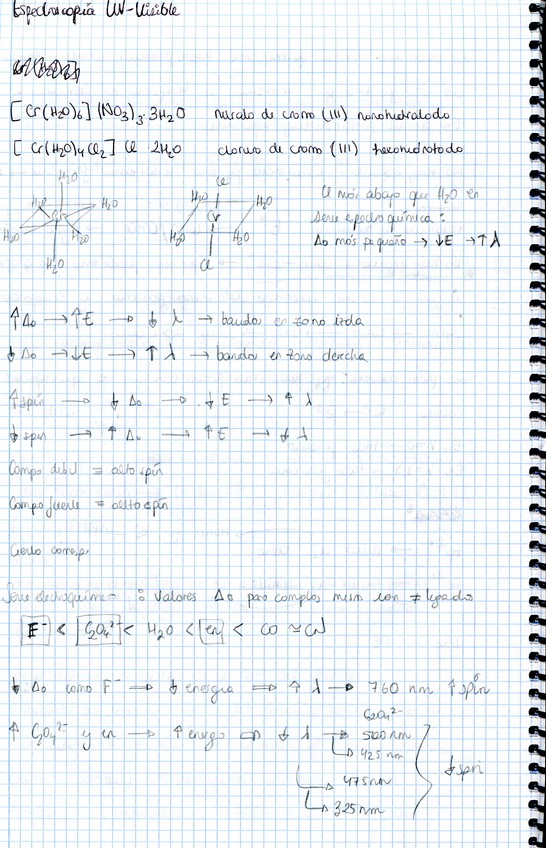 Espectroscopía UV-Visible
[Cr(H₂O)₆](NO₃)₃·3H₂O nitrato de cromo (III) nonohidratado
[Cr(H₂O)₄Cl₂]Cl 2H₂O cloruro de cromo (III) hexohidratado
H₂O
H₂O H₂O
Cr
H₂O H₂O
H₂O
Cl
H₂O H₂O
Cr
H₂O H₂O
Cl
Cl más abajo que H₂O en
serie espectroquímica :
Δo más pequeño → ↓E → ↑λ
↑Δo → ↑E → ↓ λ → bandas en zona izda
↓Δo → ↓E → ↑ λ → bandas en zona derecha
↑spin → ↓ Δo → ↓ E → ↑ λ
↓spin → ↑ Δo → ↑E → ↓ λ
Campo debil = alto spin
Campo fuerte = alto spin
Serie : Valores Δo para complejos mism ion ≠ ligados
F⁻ < C₂O₄²⁻ < H₂O < en < CO ≅ CN
↓ Δo como F⁻ ⇒ ↓ energia ⇒ ↑ λ → 760 nm ↑ spin
↑ C₂O₄²⁻ y en → ↑ energia ⇒ ↓ λ →
C₂O₄²⁻
nm
425 nm
475nm
325nm
↓spin